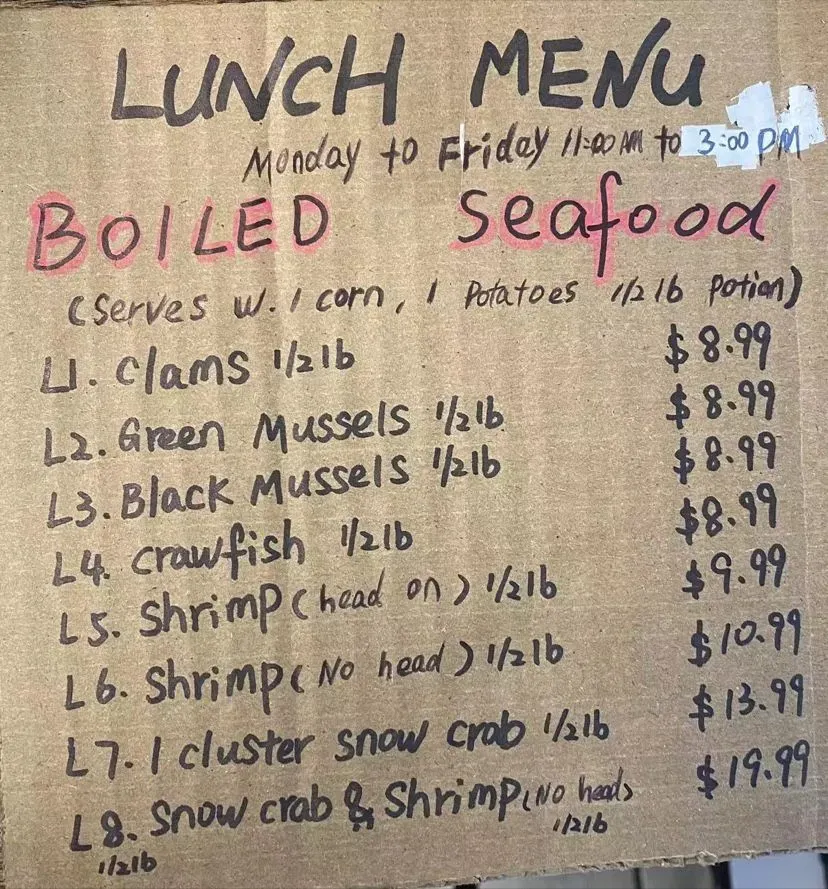 LUNCH MENU
Monday to Friday 11:00 AM to 3:00 PM
BOILED Seafood
(Serves w. 1 corn, 1 Potatoes 1/2 lb Potion)
L1. Clams 1/2 lb $8.99
L2. Green Mussels 1/2 lb $8.99
L3. Black Mussels 1/2 lb $8.99
L4. Crawfish 1/2 lb $8.99
L5. Shrimp (head on) 1/2 lb $9.99
L6. Shrimp (No head) 1/2 lb $10.99
L7. 1 cluster snow crab 1/2 lb $13.99
L8. Snow crab & Shrimp (No head) $19.99
1/2 lb 1/2 lb